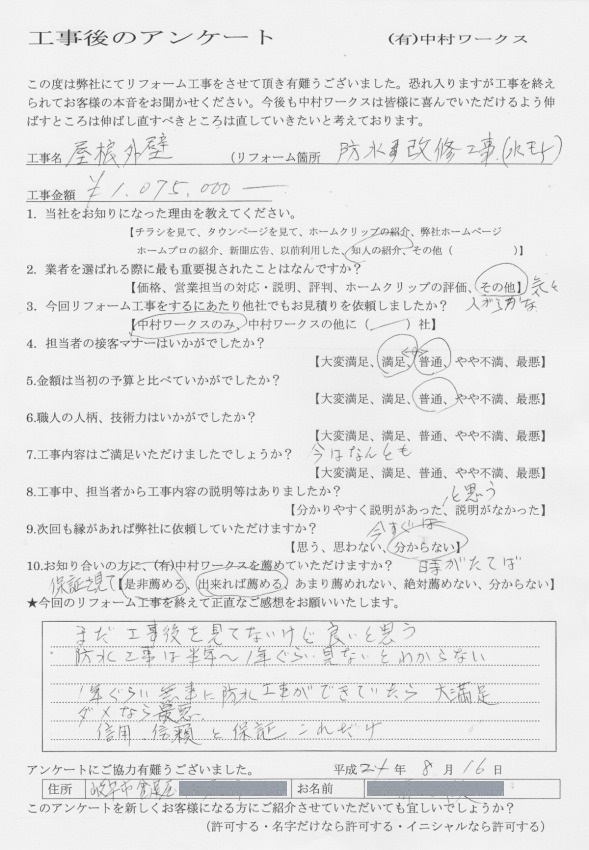 工事後のアンケート (有)中村ワークス
この度は弊社にてリフォーム工事をさせて頂き有難うございました。恐れ入りますが工事を終え
られてお客様の本音をお聞かせください。今後も中村ワークスは皆様に喜んでいただけるよう伸
ばすところは伸ばし直すべきところは直していきたいと考えております。
工事名 屋根外壁 (リフォーム箇所 防水改修工事
工事金額 ¥1.075.000—
1. 当社をお知りになった理由を教えてください。
【チラシを見て、タウンページを見て、ホームクリップの紹介、弊社ホームページ
ホームプロの紹介、新聞広告、以前利用した、知人の紹介、その他（ ）】
2. 業者を選ばれる際に最も重要視されたことはなんですか？
【価格、営業担当の対応・説明、評判、ホームクリップの評価、その他】
3. 今回リフォーム工事をするにあたり他社でもお見積りを依頼しましたか？
【中村ワークスのみ、中村ワークスの他に（ ）社】
4. 担当者の接客マナーはいかがでしたか？
【大変満足、満足、普通、やや不満、最悪】
5.金額は当初の予算と比べていかがでしたか？
【大変満足、満足、普通、やや不満、最悪】
6.職人の人柄、技術力はいかがでしたか？
【大変満足、満足、普通、やや不満、最悪】
7.工事内容はご満足いただけましたでしょうか？ 今はなんとも
【大変満足、満足、普通、やや不満、最悪】
8.工事中、担当者から工事内容の説明等はありましたか？ と思う
【分かりやすく説明があった、説明がなかった】
9.次回も縁があれば弊社に依頼していただけますか？ 今すぐは
【思う、思わない、分からない】
10.お知り合いの方に、(有)中村ワークスを薦めていただけますか？ 時がたてば
保証を見て【是非薦める、出来れば薦める、あまり薦めれない、絶対薦めない、分からない】
★今回のリフォーム工事を終えて正直なご感想をお願いいたします。
まだ工事後を見てないけど良いと思う
防水工事は半年〜1年ぐらい見ないとわからない
1年ぐらい無事に防水工事ができていたら 大満足
ダメなら最悪.
信用 信頼と保証 これだけ
アンケートにご協力有難うございました。 平成 24 年 8 月 16 日
住所 お名前
このアンケートを新しくお客様になる方にご紹介させていただいても宜しいでしょうか？
(許可する・名字だけなら許可する・イニシャルなら許可する)